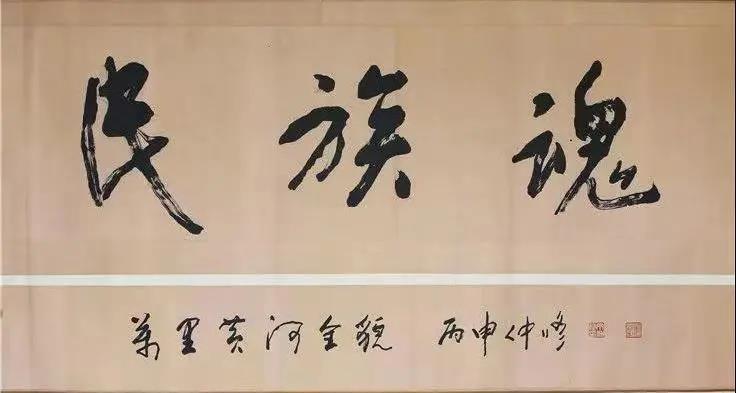 民族魂
萬里黄河全貌 丙申仲修